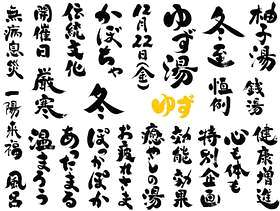 柚子湯
銭湯
健康増進
冬至
恒例
心も体も
ゆず湯
特別企画
ゆず
効能効果
12月22日(金)
癒やしの湯
かぼちゃ
冬
お疲れさま
ぽかぽか
伝統文化
あったまる
開催日
厳寒
温まろう
無病息災
一陽来福
風呂